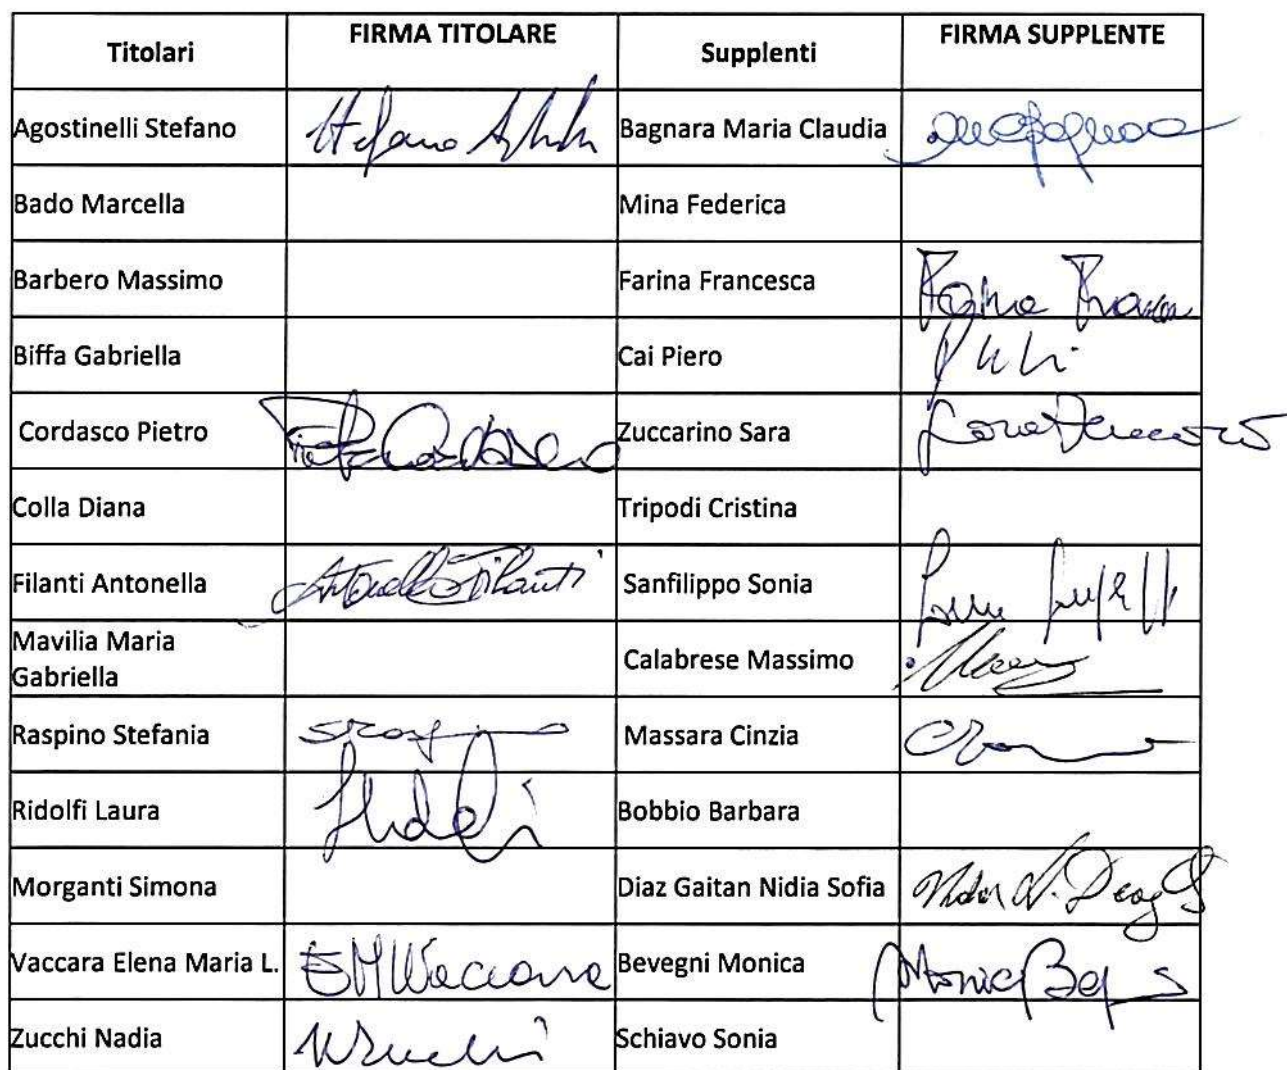 Titolari FIRMA TITOLARE Supplenti FIRMA SUPPLENTE
Agostinelli Stefano Stefano Bagnara Maria Claudia
Bado Marcella Mina Federica
Barbero Massimo Farina Francesca
Biffa Gabriella Cai Piero
Cordasco Pietro Zuccarino Sara
Colla Diana Tripodi Cristina
Filanti Antonella Antonella Filanti Sanfilippo Sonia
Mavilia Maria
Gabriella Calabrese Massimo
Raspino Stefania Massara Cinzia
Ridolfi Laura Bobbio Barbara
Morganti Simona Diaz Gaitan Nidia Sofia
Vaccara Elena Maria L. EMVaccara Bevegni Monica Monica
Zucchi Nadia Schiavo Sonia